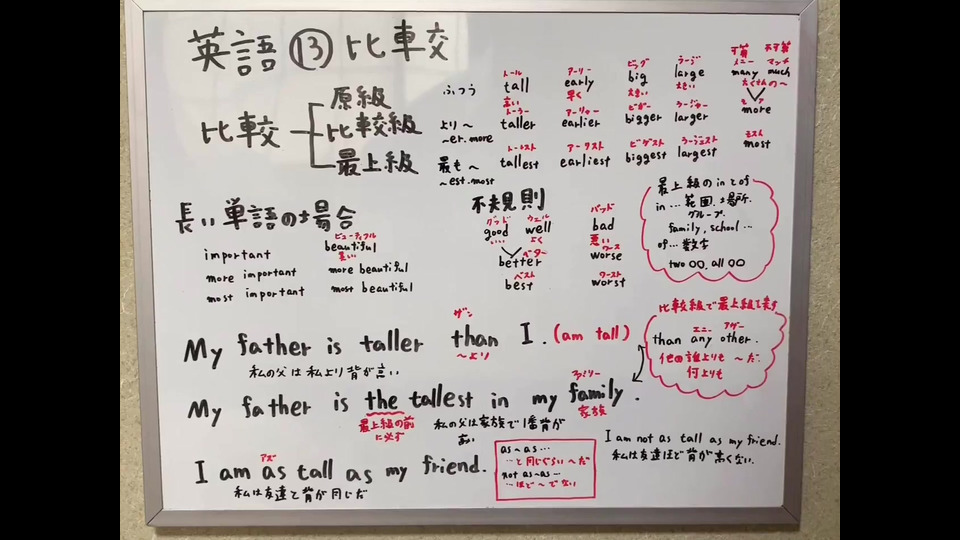 英語⑬比較
比較
原級
比較級
最上級
ふつう
より～
~er.more
最も～
~est.most
トール
tall
高い
トーラー
taller
トーレスト
tallest
アーリー
early
早く
アーリヤー
earlier
アーリスト
earliest
ビッグ
big
大きい
ビガー
bigger
ビゲスト
biggest
ラージ
large
大きい
ラージャー
larger
ラージェスト
largest
可算 不可算
メニー マッチ
many much
たくさんの～
モア
more
モスト
most
長い単語の場合
important
more important
most important
ビューティフル
beautiful
美しい
more beautiful
most beautiful
不規則
グッド ウェル
good well
いい よく
ベター
better
ベスト
best
バッド
bad
悪い
ワース
worse
ワースト
worst
最上級のinとof
in… 範囲.場所.
グループ.
family, school…
of… 数字
two ○○, all ○○
比較級で最上級を表す
エニー アザー
than any other.
他の誰よりも ～だ.
何よりも
ザン
My father is taller than I. (am tall)
～より
私の父は私より背が高い
ファミリー
My father is the tallest in my family.
最上級の前
に必ず
家族
私の父は家族で1番背が
高い
アズ
I am as tall as my friend.
私は友達と背が同じだ
as～as…
…と同じぐらい～だ
not as～as…
…ほど～でない
I am not as tall as my friend.
私は友達ほど背が高くない.